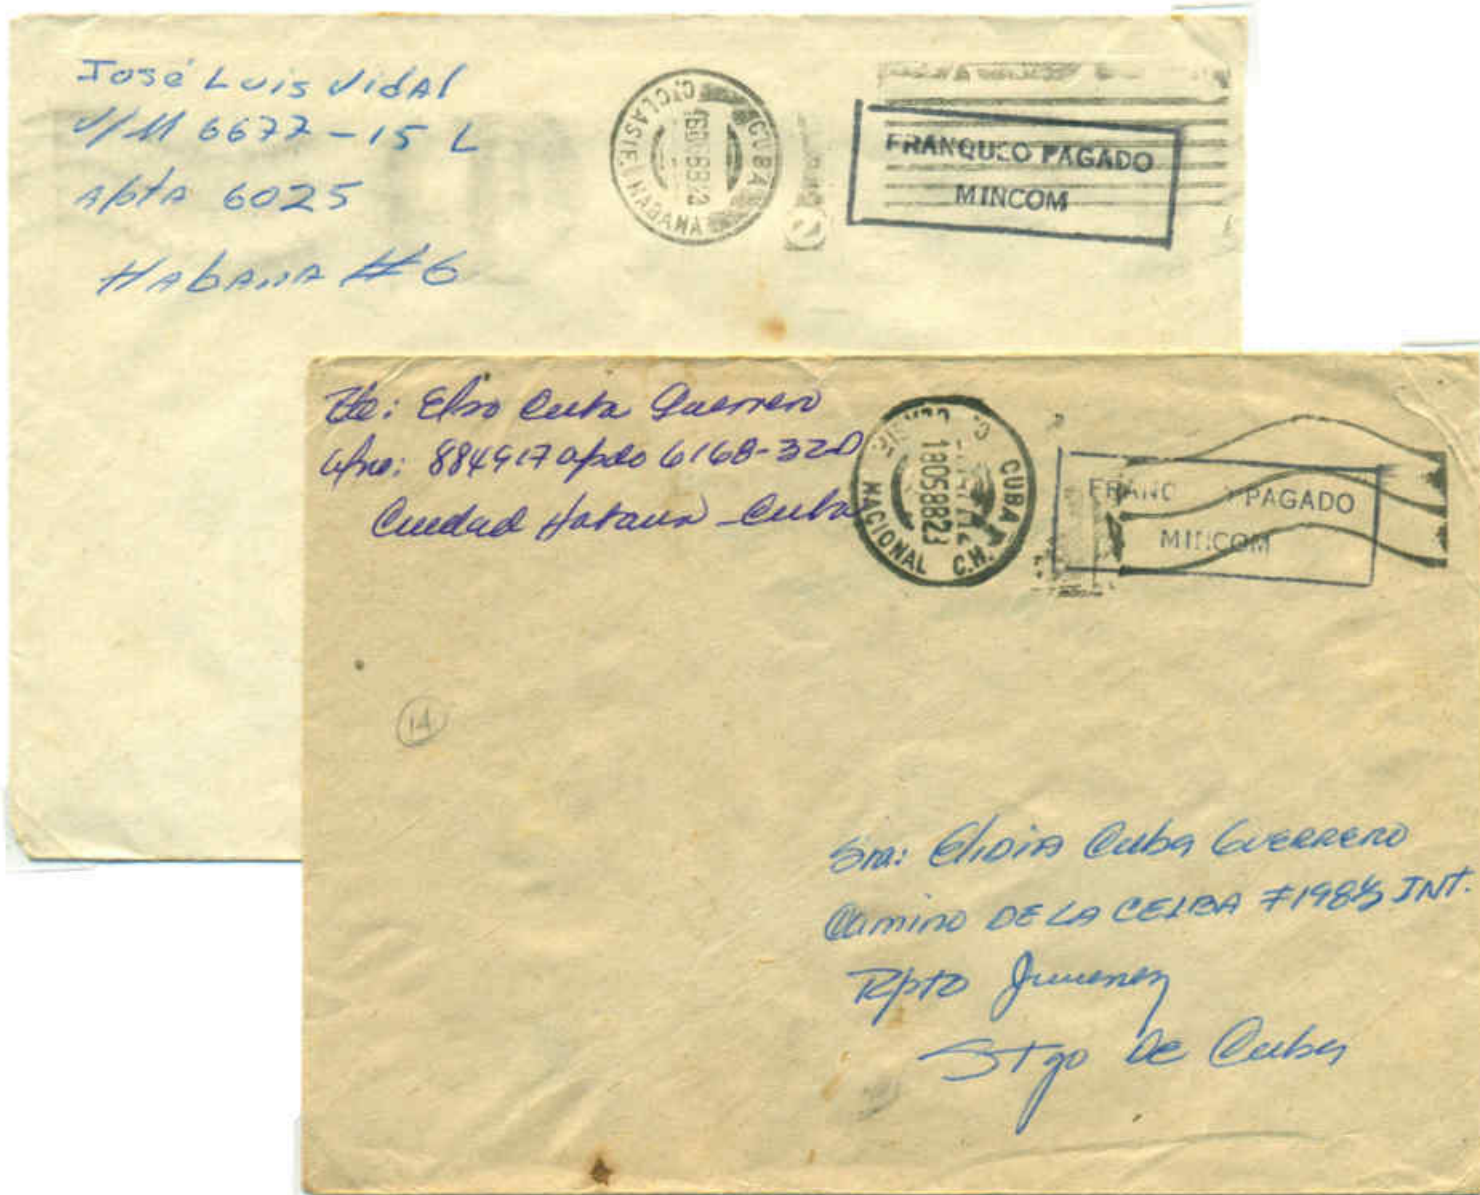 José Luis Vidal
U/M 6677-15 L
Apta 6025
Habana #6
C. CLASIF. HABANA
CUBA
FRANQUEO PAGADO
MINCOM
Elso Cuba Guerrero
884917 apdo 6168-32D
Ciudad Habana-Cuba
NACIONAL C.H.
CUBA
18058823
FRANQ PAGADO
MINCOM
14
Sra: Elidia Cuba GUERRERO
Camino DE LA CEIBA #198½ INT.
Rpto Jimenez
Stgo De Cuba